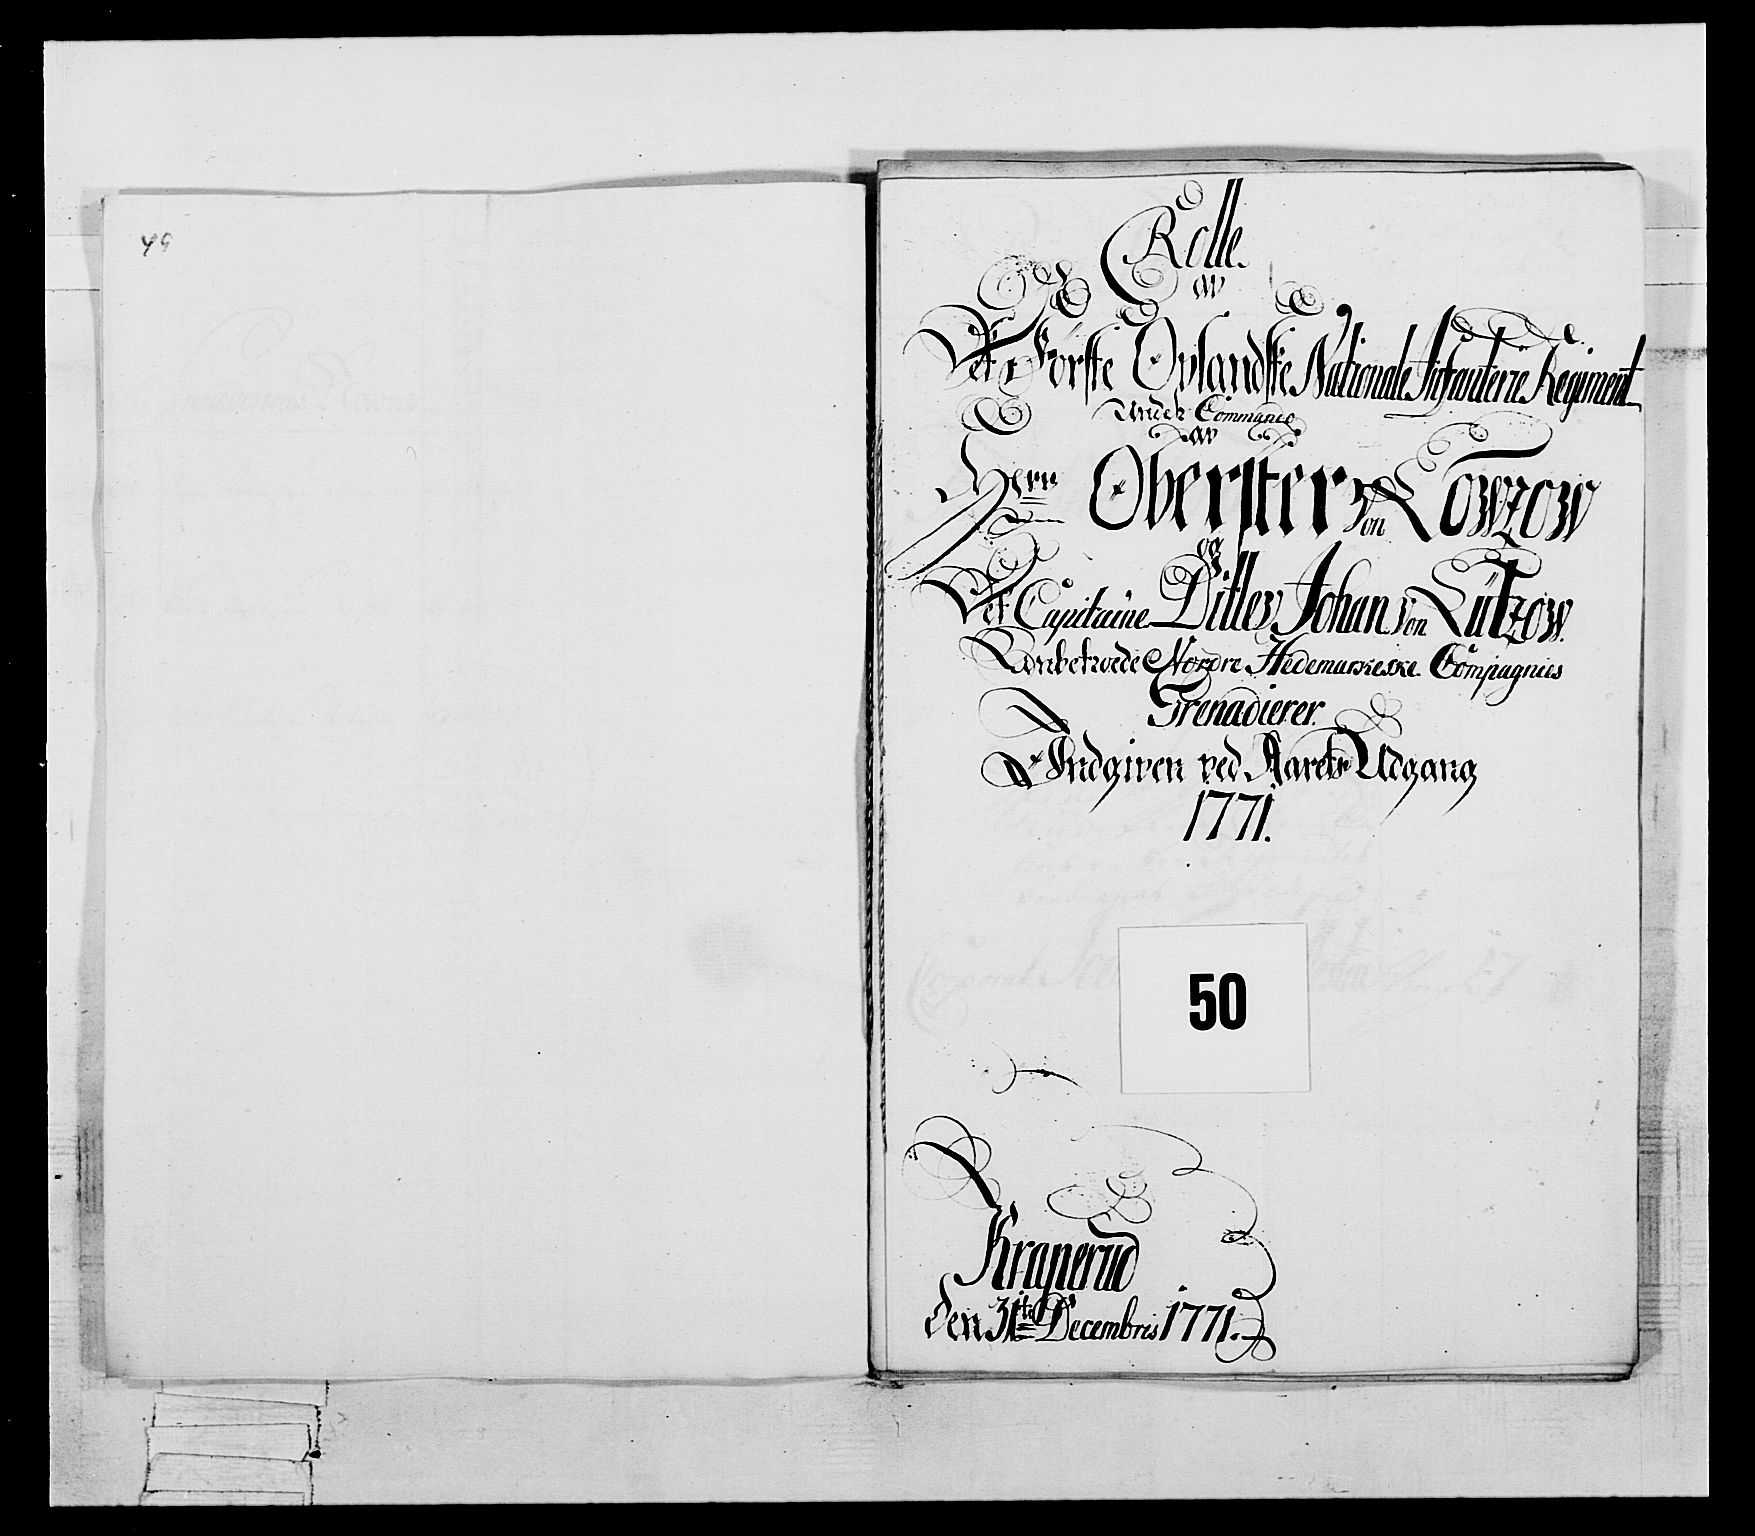 49
Rolle
av
Det Förste Oplandske Nationale Infanterie Regiment
Under Commando
av
Herr Oberster von Lowzow
og
Det Capitaine Ditlev Johan von Lützow
Anbetroede Nordre Hedemarkeske Compagnies
Grenadierer.
Indgiven ved Aarets Udgang
1771.
50
Kraperud
den 31te Decembris 1771.